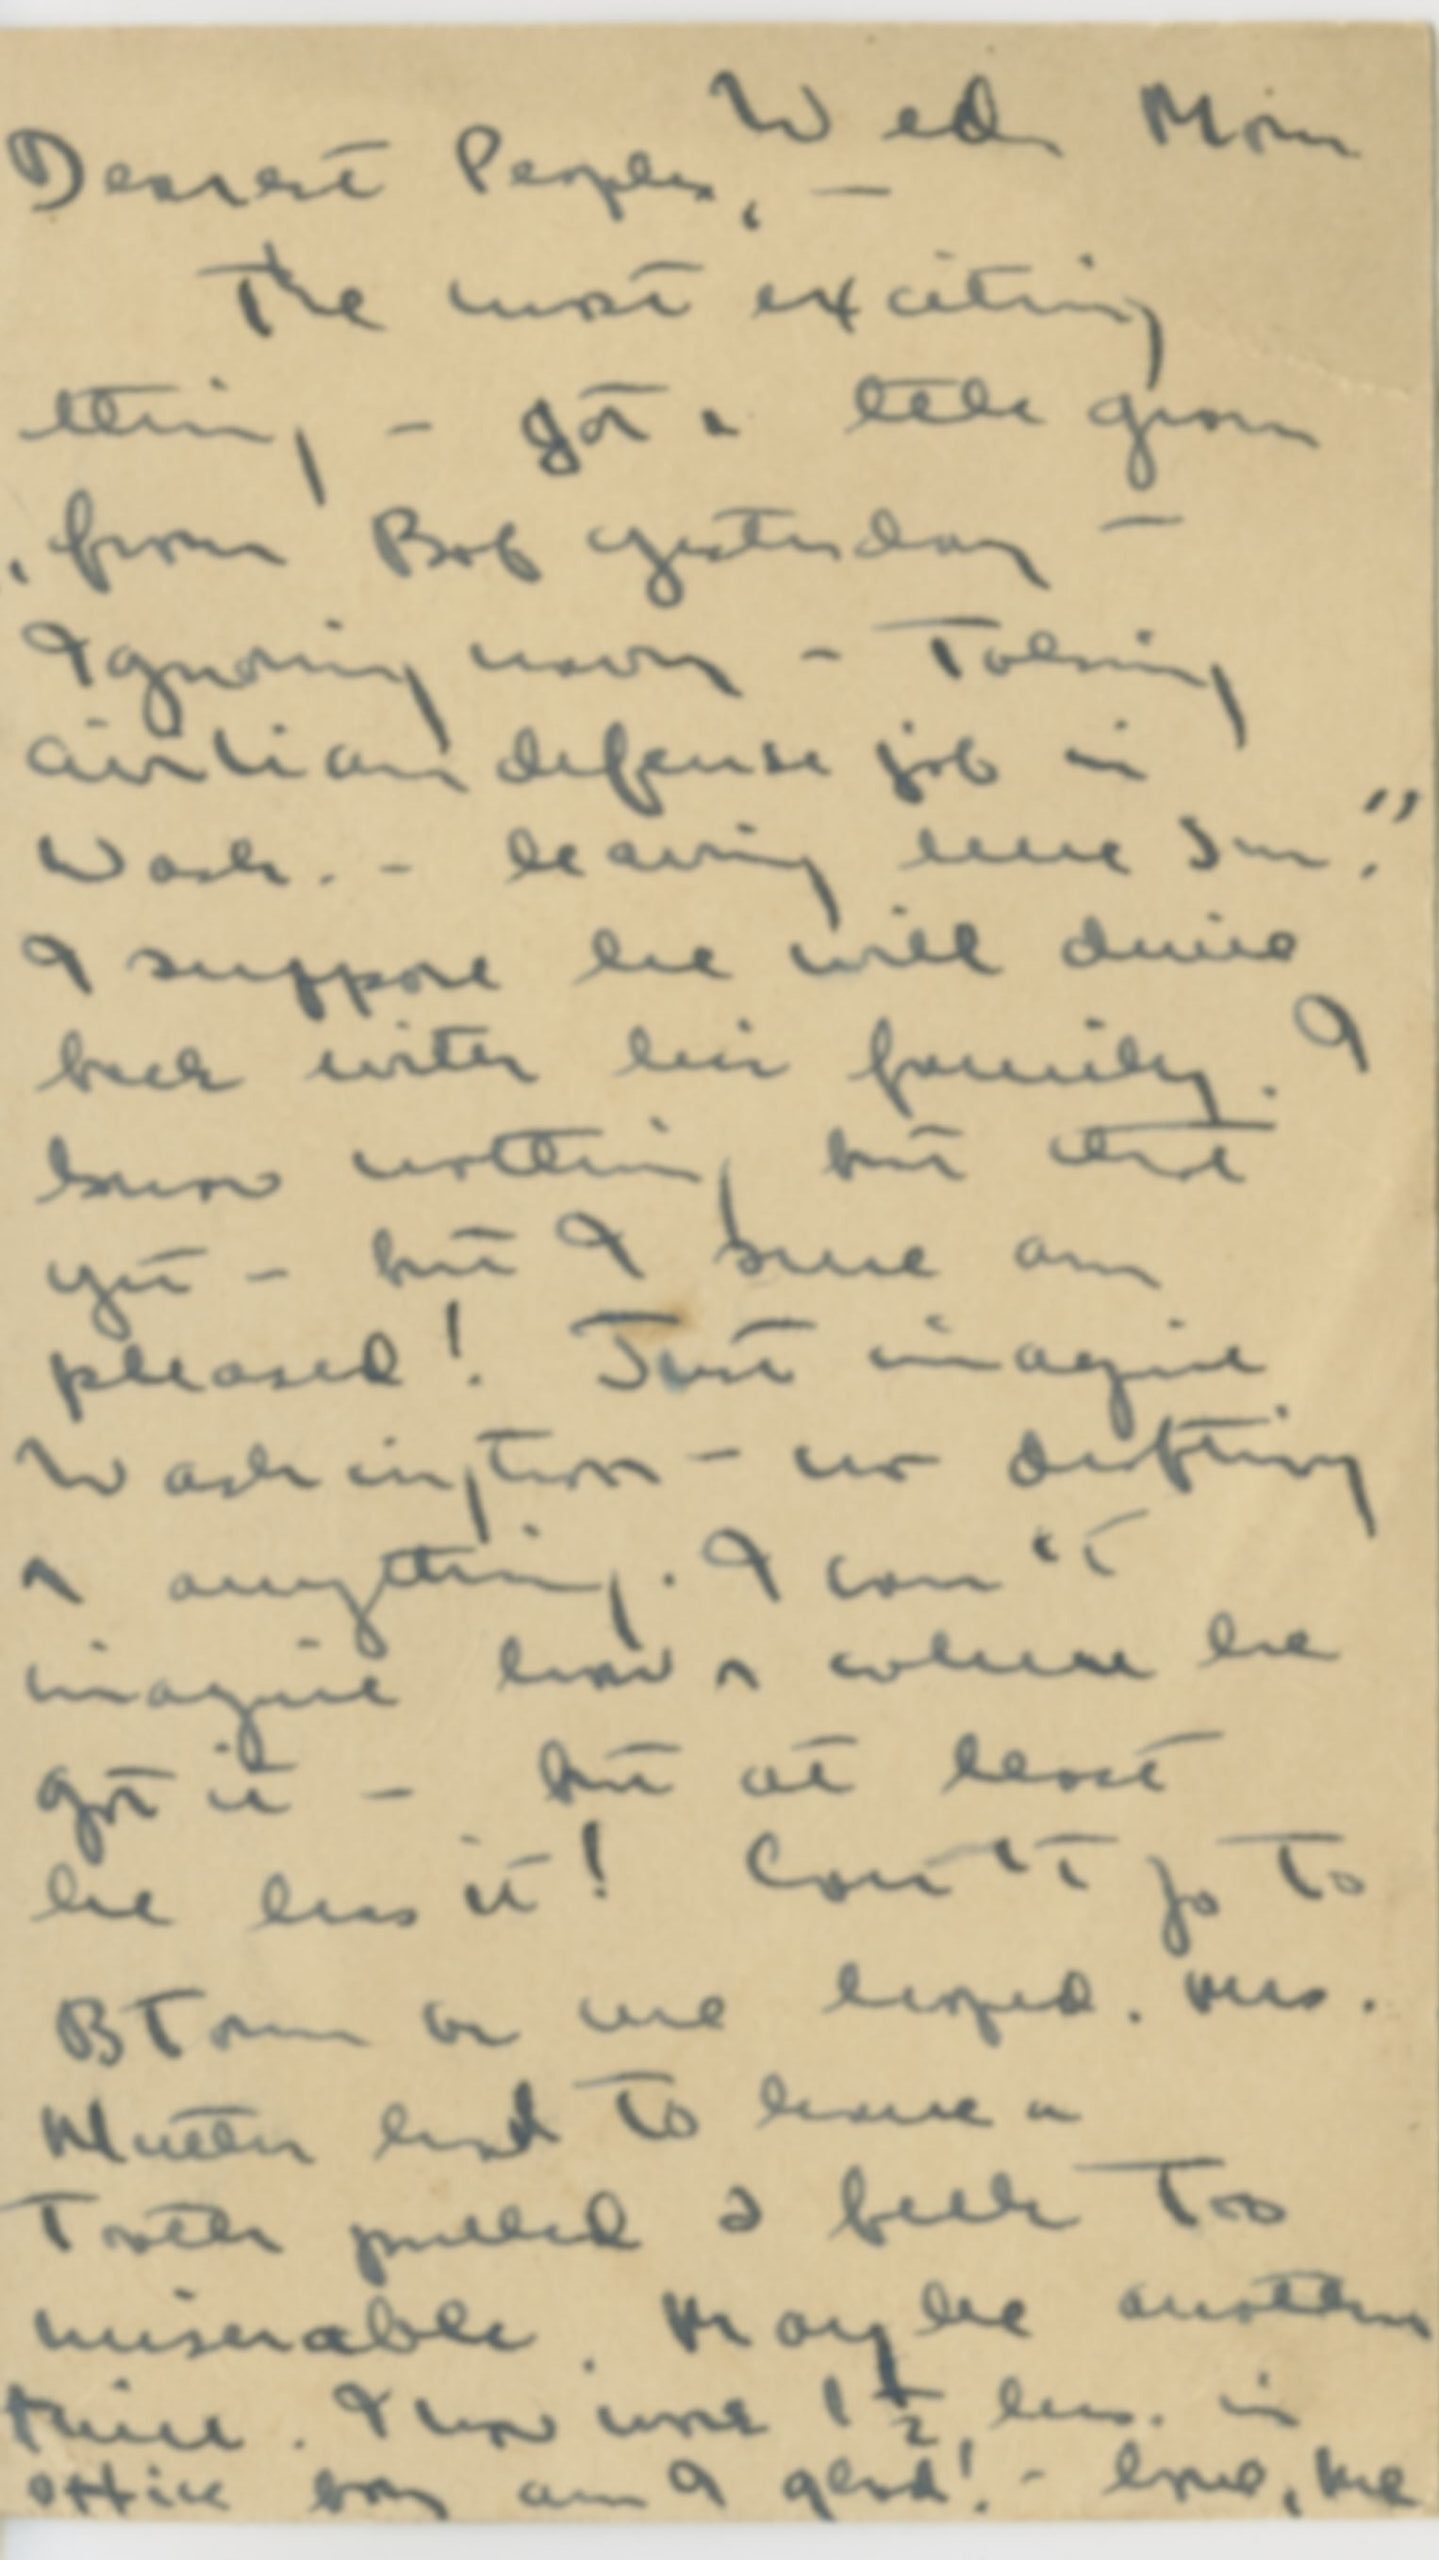 Wed Morn
Dearest Peoples, —
The most exciting
thing — got a telegram
from Bob yesterday —
"Ignoring navy — Taking
civilian defense job in
Wash. — leaving here Sun."
I suppose he will drive
back with his family. I
know nothing but that
yet — but I sure am
pleased! Just imagine
Washington — no drafting
or anything. I can't
imagine how or where he
got it — but at least
he has it! Can't go to
BTown as we hoped. Mrs.
had to have a
tooth pulled & feels too
miserable. Maybe another
time. I now work 1½ hrs. in
office boy am I glad! — Love, Me